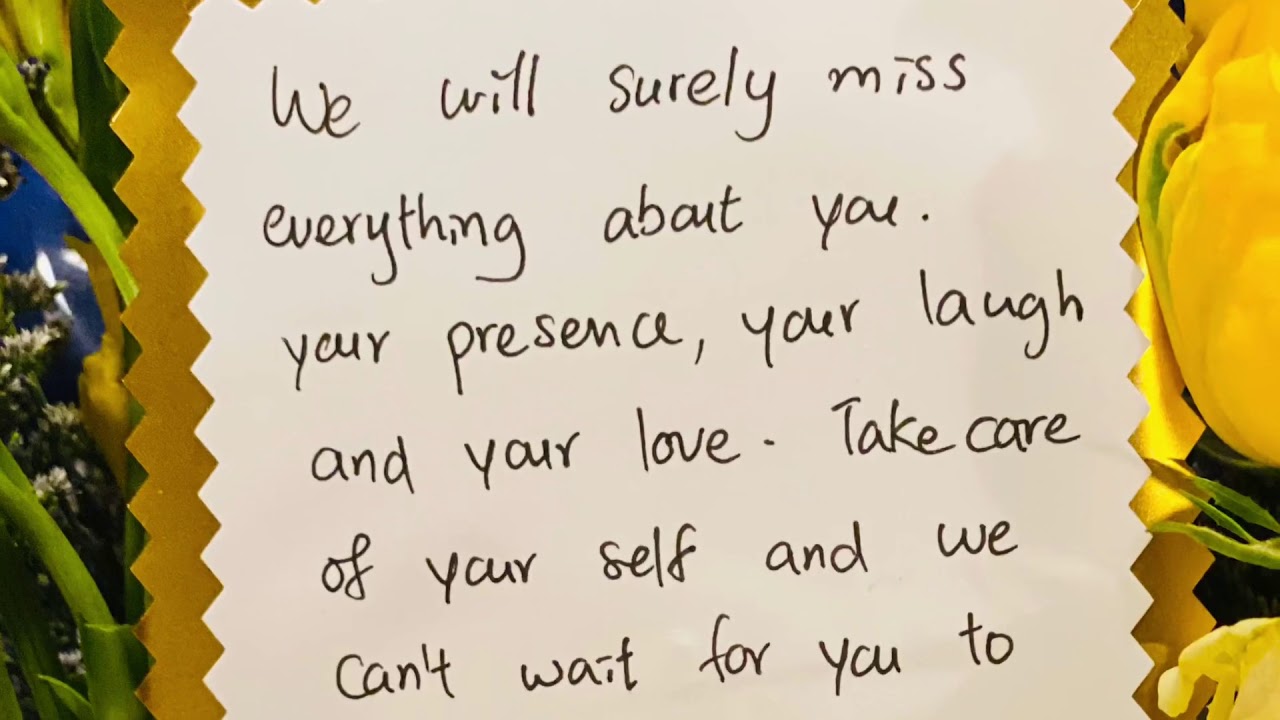 We will surely miss
everything about you.
your presence, your laugh
and your love. Take care
of your self and we
can't wait for you to